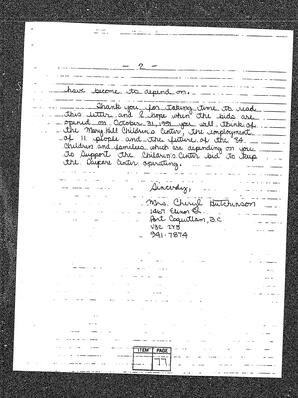 - 2 -
have become to depend on.
Thank you for taking time to read
this letter and I hope when the bids are
opened on October 31, 1991 you will think of
the Mary Hill Children's Center, the employment
of 11 people and the future of the 84
children and families which are depending on you
to support the Children's Center bid to keep
the Daycare Center operating.
Sincerely,
Mrs. Cheryl Hutchinson
Elinor St.
Port Coquitlam, B.C.
V3C
941-7874
ITEM PAGE
77